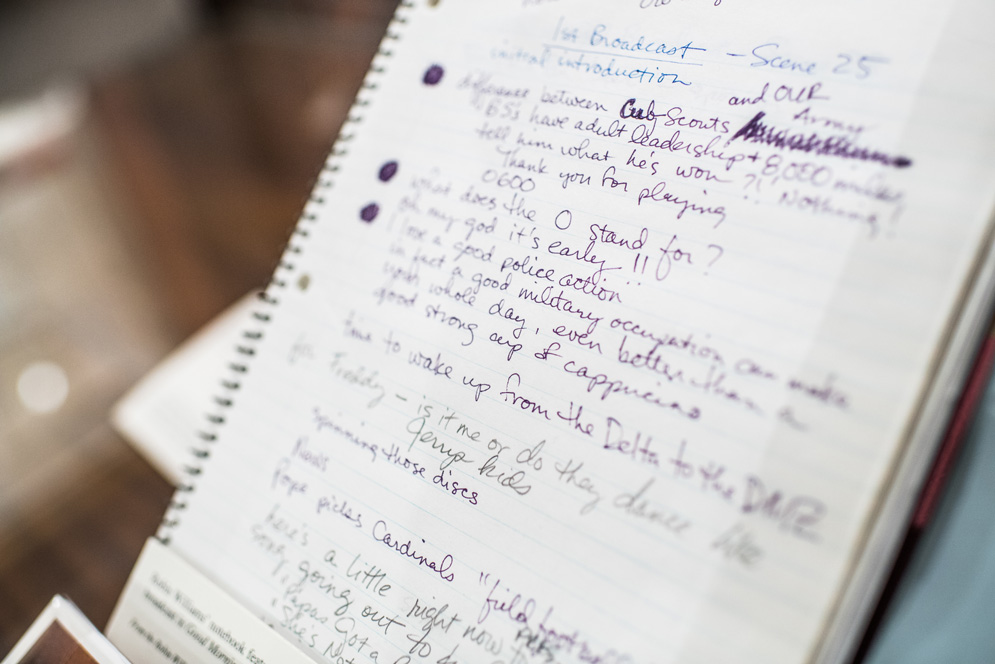 1st Broadcast - Scene 25
initial introduction
difference between Cub Scouts and OUR Army
"BS's have adult leadership + 8,000
tell him what he's won ?! Nothing!
Thank you for playing
0600
what does the O stand for?
oh my god it's early!!
love a good police action
in fact a good military occupation can make
your whole day, even better than a
good strong cup of cappucino
time to wake up from the Delta to the DMZ
Freddy - is it me or do they dance like
Jerrys kids
spinning those discs
News
Pope picks Cardinals "field
here's a little right now
going out to
Papas Got a
"She's Not
Robin Williams' notebook
broadcast in Good